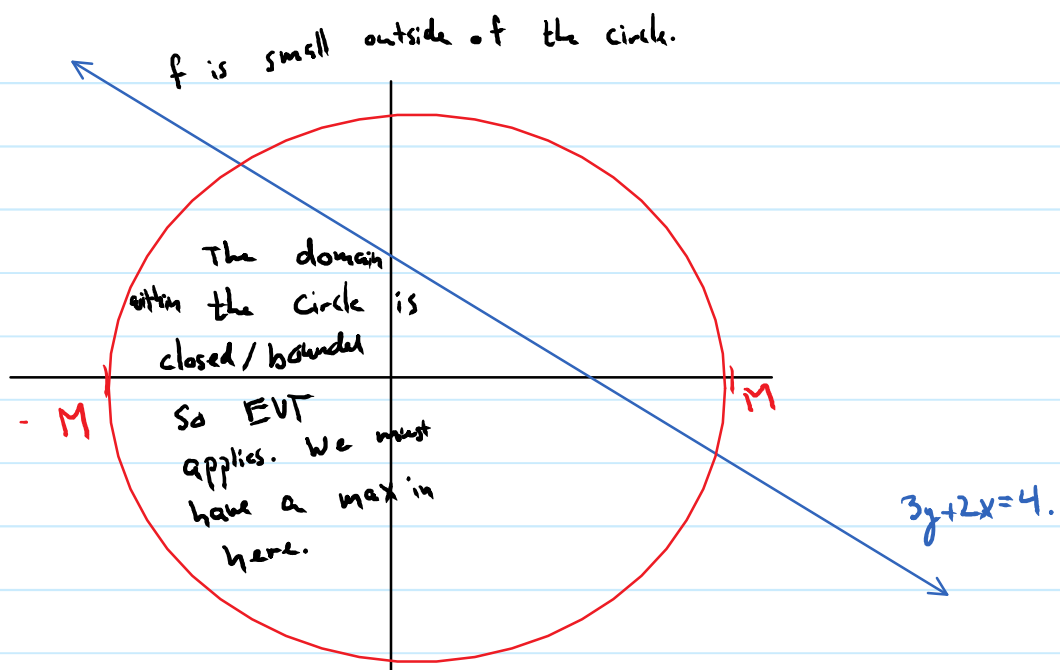 f is small outside of the circle.
The domain
within the circle is
closed/bounded
So EVT
applies. We must
have a max in
here.
- M
M
3y+2x=4.